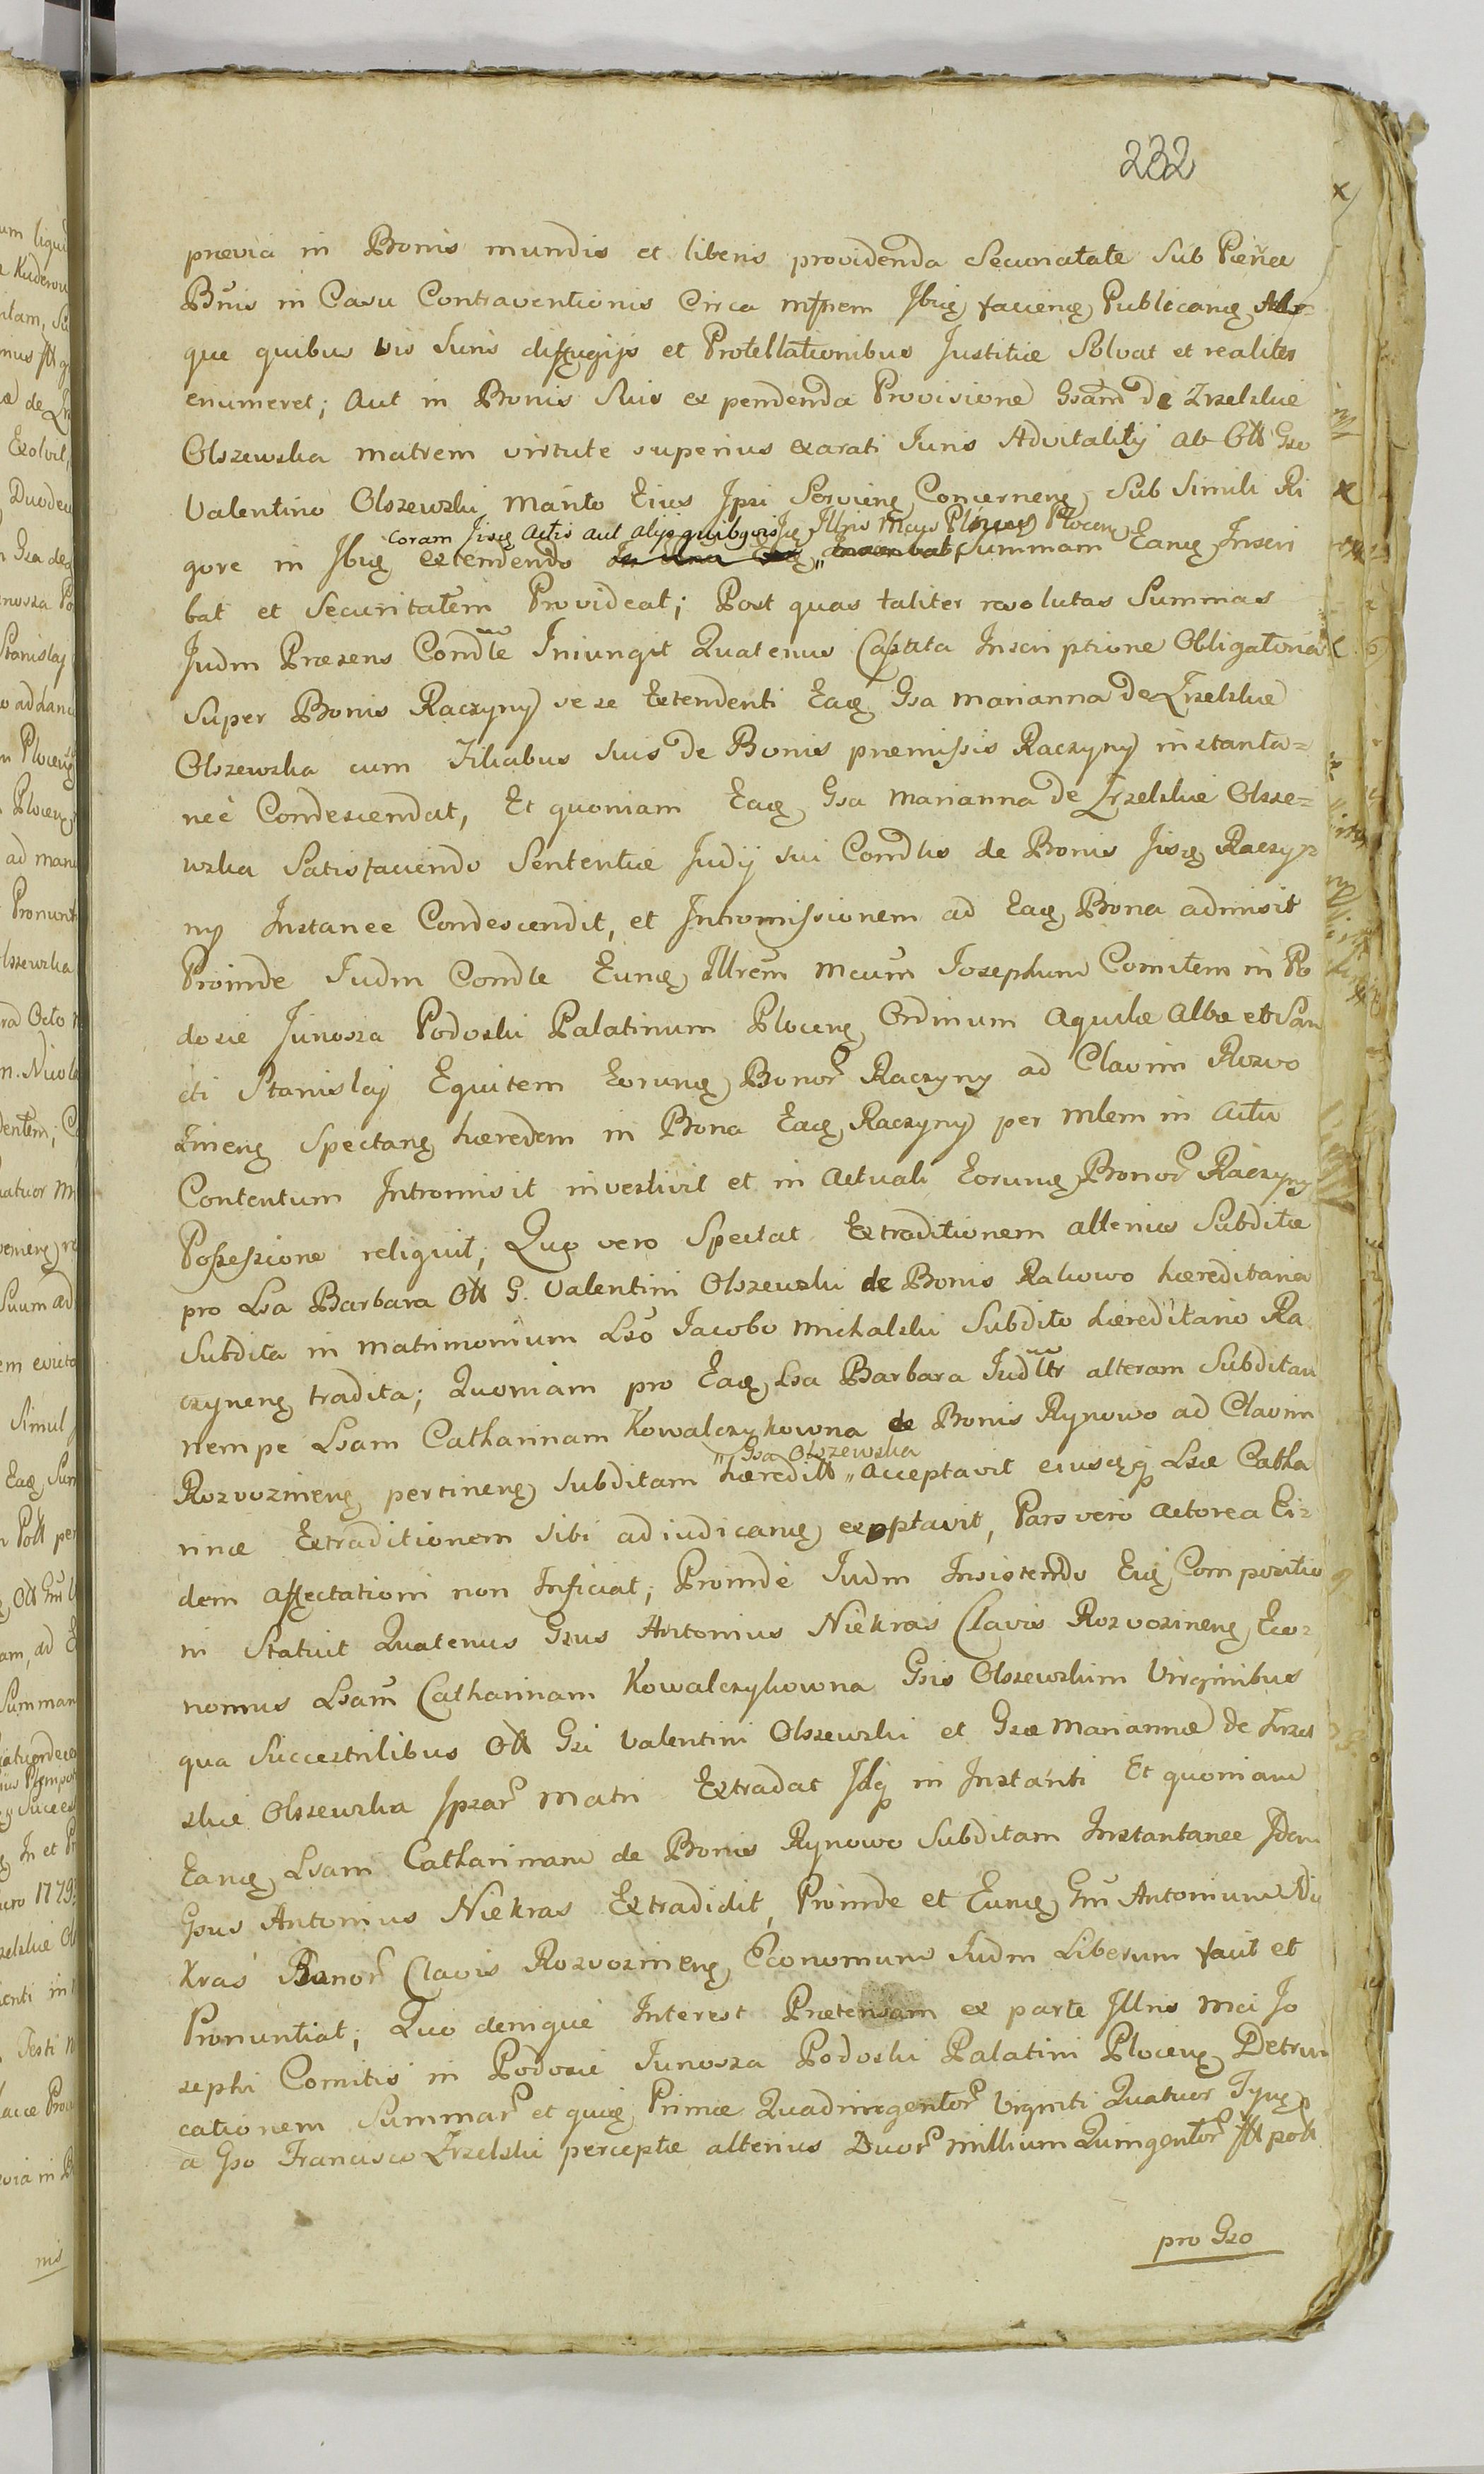 232
prævia in Bonis mundis et liberis providenda Securitate Sub Pæna
Bnis in Casu Contraventionis Circa Ibidę facieñę Publicanę Abs-
que quibus vis Juris diffugijs et Protellationibus Justitiæ Solvat et realiter
enumeret; Aut in Bonis Suis ex pendenda Provisione Gsam de Zrzelskie
Olszewska matrem virtute superius exarati Juris Advitalitij ab Oltt Gso
Valentino Olszewski Marito Eius Ipsi Servienę Concernenę, Sub Simili Ri
Coram Jisdę Actis aut alijs quibusvis Idę Illris Mcus Plocenę
gore in Ibidę extendendo Summam Eandę Inscri
bat et Securitatem Provideat; Post quas taliter resolutas Summas
Judm Præsens Condle Iniungit Quatenus Captata Inscriptione Obligatoria
Super Bonis Raczyny se se Extendenti Eadę Gsa Marianna de Zrzelskie
Olszewska cum Filiabus suis de Bonis præmissis Raczyny instanta=
neè Condescendat, Et quoniam Eadę Gsa Marianna de Zrzelskie Olsze=
wska Satisfaciendo Sententiæ Judij sui Condlis de Bonis Jisdę Raczy
ny Instanee Condescendit, et Intromissionem ad Eadę Bona admisit
Proinde Judm Condle Eundę Illrem Mcum Josephum Comitem in Po
dosie Junosza Podoski Palatinum Plocenę Ordinum Aquilæ Albæ et San
cti Stanislaj Equitem Eorundę Bonor Raczyny ad Clavim Rozwo
zinenę Spectanę hæredem in Bona Eadę Raczyny per Mlem in Actu
Contentum Intromisit investivit et in Actuali Eorundę Bonor Raczyny
Possessione reliquit; Quo vero Spectat Extraditionem alterius Subditæ
pro Lsa Barbara Oltt G. Valentini Olszewski de Bonis Rakowo hæreditaria
Subdita in matrimonium Lso Jacobo Michalski Subdito hæreditario Ra
czynenę tradita; Quoniam pro Eadę Lsa Barbara Judltr alteram Subditam
nempe Lsam Catharinam Kowalczykowna de Bonis Rynowo ad Clavim
Gsa Olszewska
Rozvozinenę pertinenę subditam hæreditt acceptavit eiusdęq Lsæ Catha
rinæ Extraditionem sibi adiudicandę exoptavit, Pars verò Actorea Ei=
dem affectationi non Inficiat; Proindè Judm Insistendo Eidę Compositio
ni Statuit Quatenus Gsus Antonius Niekraś Clavis Rozvozinenę Eco=
nomus Lsam Catharinam Kowalczykowna Gsis Olszewskim Virginibus
qua Successtrilibus Oltt Gsi Valentini Olszewski et Gsæ Mariannæ de Zrzel
skie Olszewska Ipsar Matri Extradat Idq in Instánti Et quoniam
Eandę Lsam Catharinam de Bonis Rynowo Subditam Instantanee Idem
Gsus Antonius Niekras Extradidit, Proinde et Eundę Gm Antonium Nie
kraś Bonor Clavis Rozvozinenę Economum Judm Liberum facit et
Pronuntiat; Quo denique Interest Prætensam ex parte Illris Mci Jo
sephi Comitis in Podosie Junosza Podoski Palatini Plocenę Detrun
cationem Summar et quidę Primæ Quadringentor Viginti Quatuor Tynę
a Gso Francisco Zrzelski perceptæ alterius Duor Millium Quingentor ff polt
pro Gso